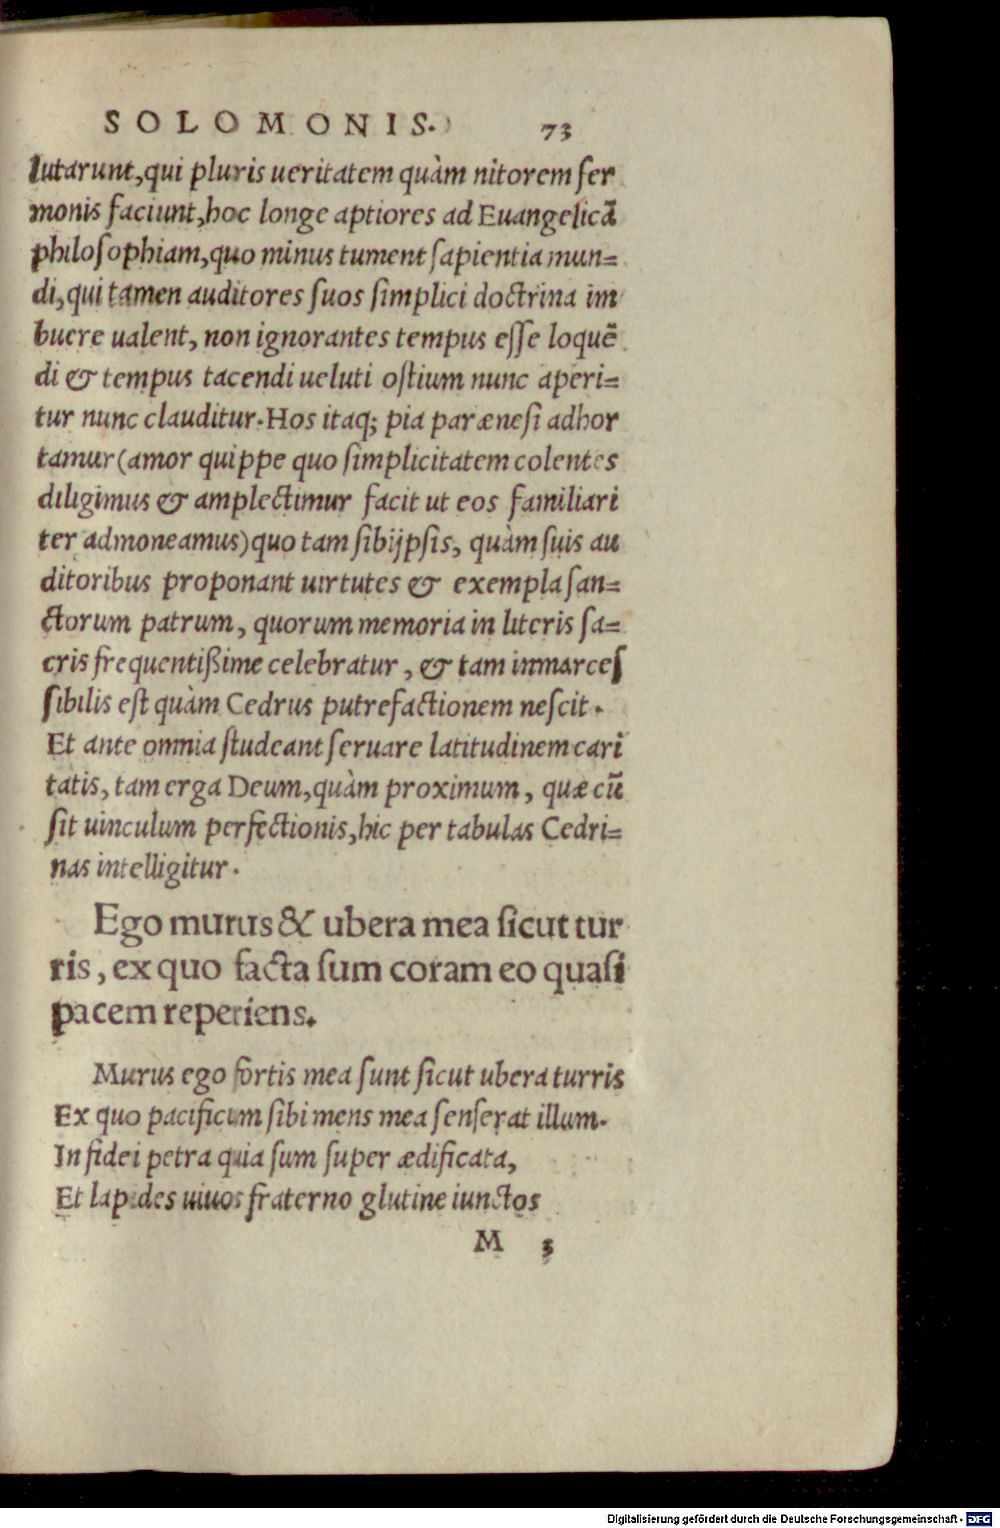 SOLOMONIS. 73
lutarunt,qui pluris ueritatem quàm nitorem ſer
monis faciunt,hoc longe aptiores ad Euangelicā
philoſophiam,quo minus tument ſapientia mun=
di,qui tamen auditores ſuos ſimplici doctrina im
buere ualent, non ignorantes tempus eſſe loquē
di & tempus tacendi ueluti oſtium nunc aperi=
tur nunc clauditur.Hos itaq; pia parænesi adhor
tamur(amor quippe quo ſimplicitatem colentes
diligimus & amplectimur facit ut eos familiari
ter admoneamus)quo tam ſibijpſis, quàm ſuis au
ditoribus proponant uirtutes & exempla ſan=
ctorum patrum, quorum memoria in literis ſa=
cris frequentißime celebratur, & tam inmarceſ
ſibilis eſt quàm Cedrus putrefactionem neſcit.
Et ante omnia ſtudeant ſeruare latitudinem cari
tatis, tam erga Deum,quàm proximum, quæ cū
ſit uinculum perfectionis,hic per tabulas Cedri=
nas intelligitur.
Ego murus & ubera mea ſicut tur
ris, ex quo facta ſum coram eo quaſi
pacem reperiens.
Murus ego fortis mea ſunt ſicut ubera turris
Ex quo pacificum ſibi mens mea ſenſerat illum.
In fidei petra quia ſum ſuper ædificata,
Et lapides uiuos fraterno glutine iunctos
M 3
Digitalisierung gefördert durch die Deutsche Forschungsgemeinschaft - DFG